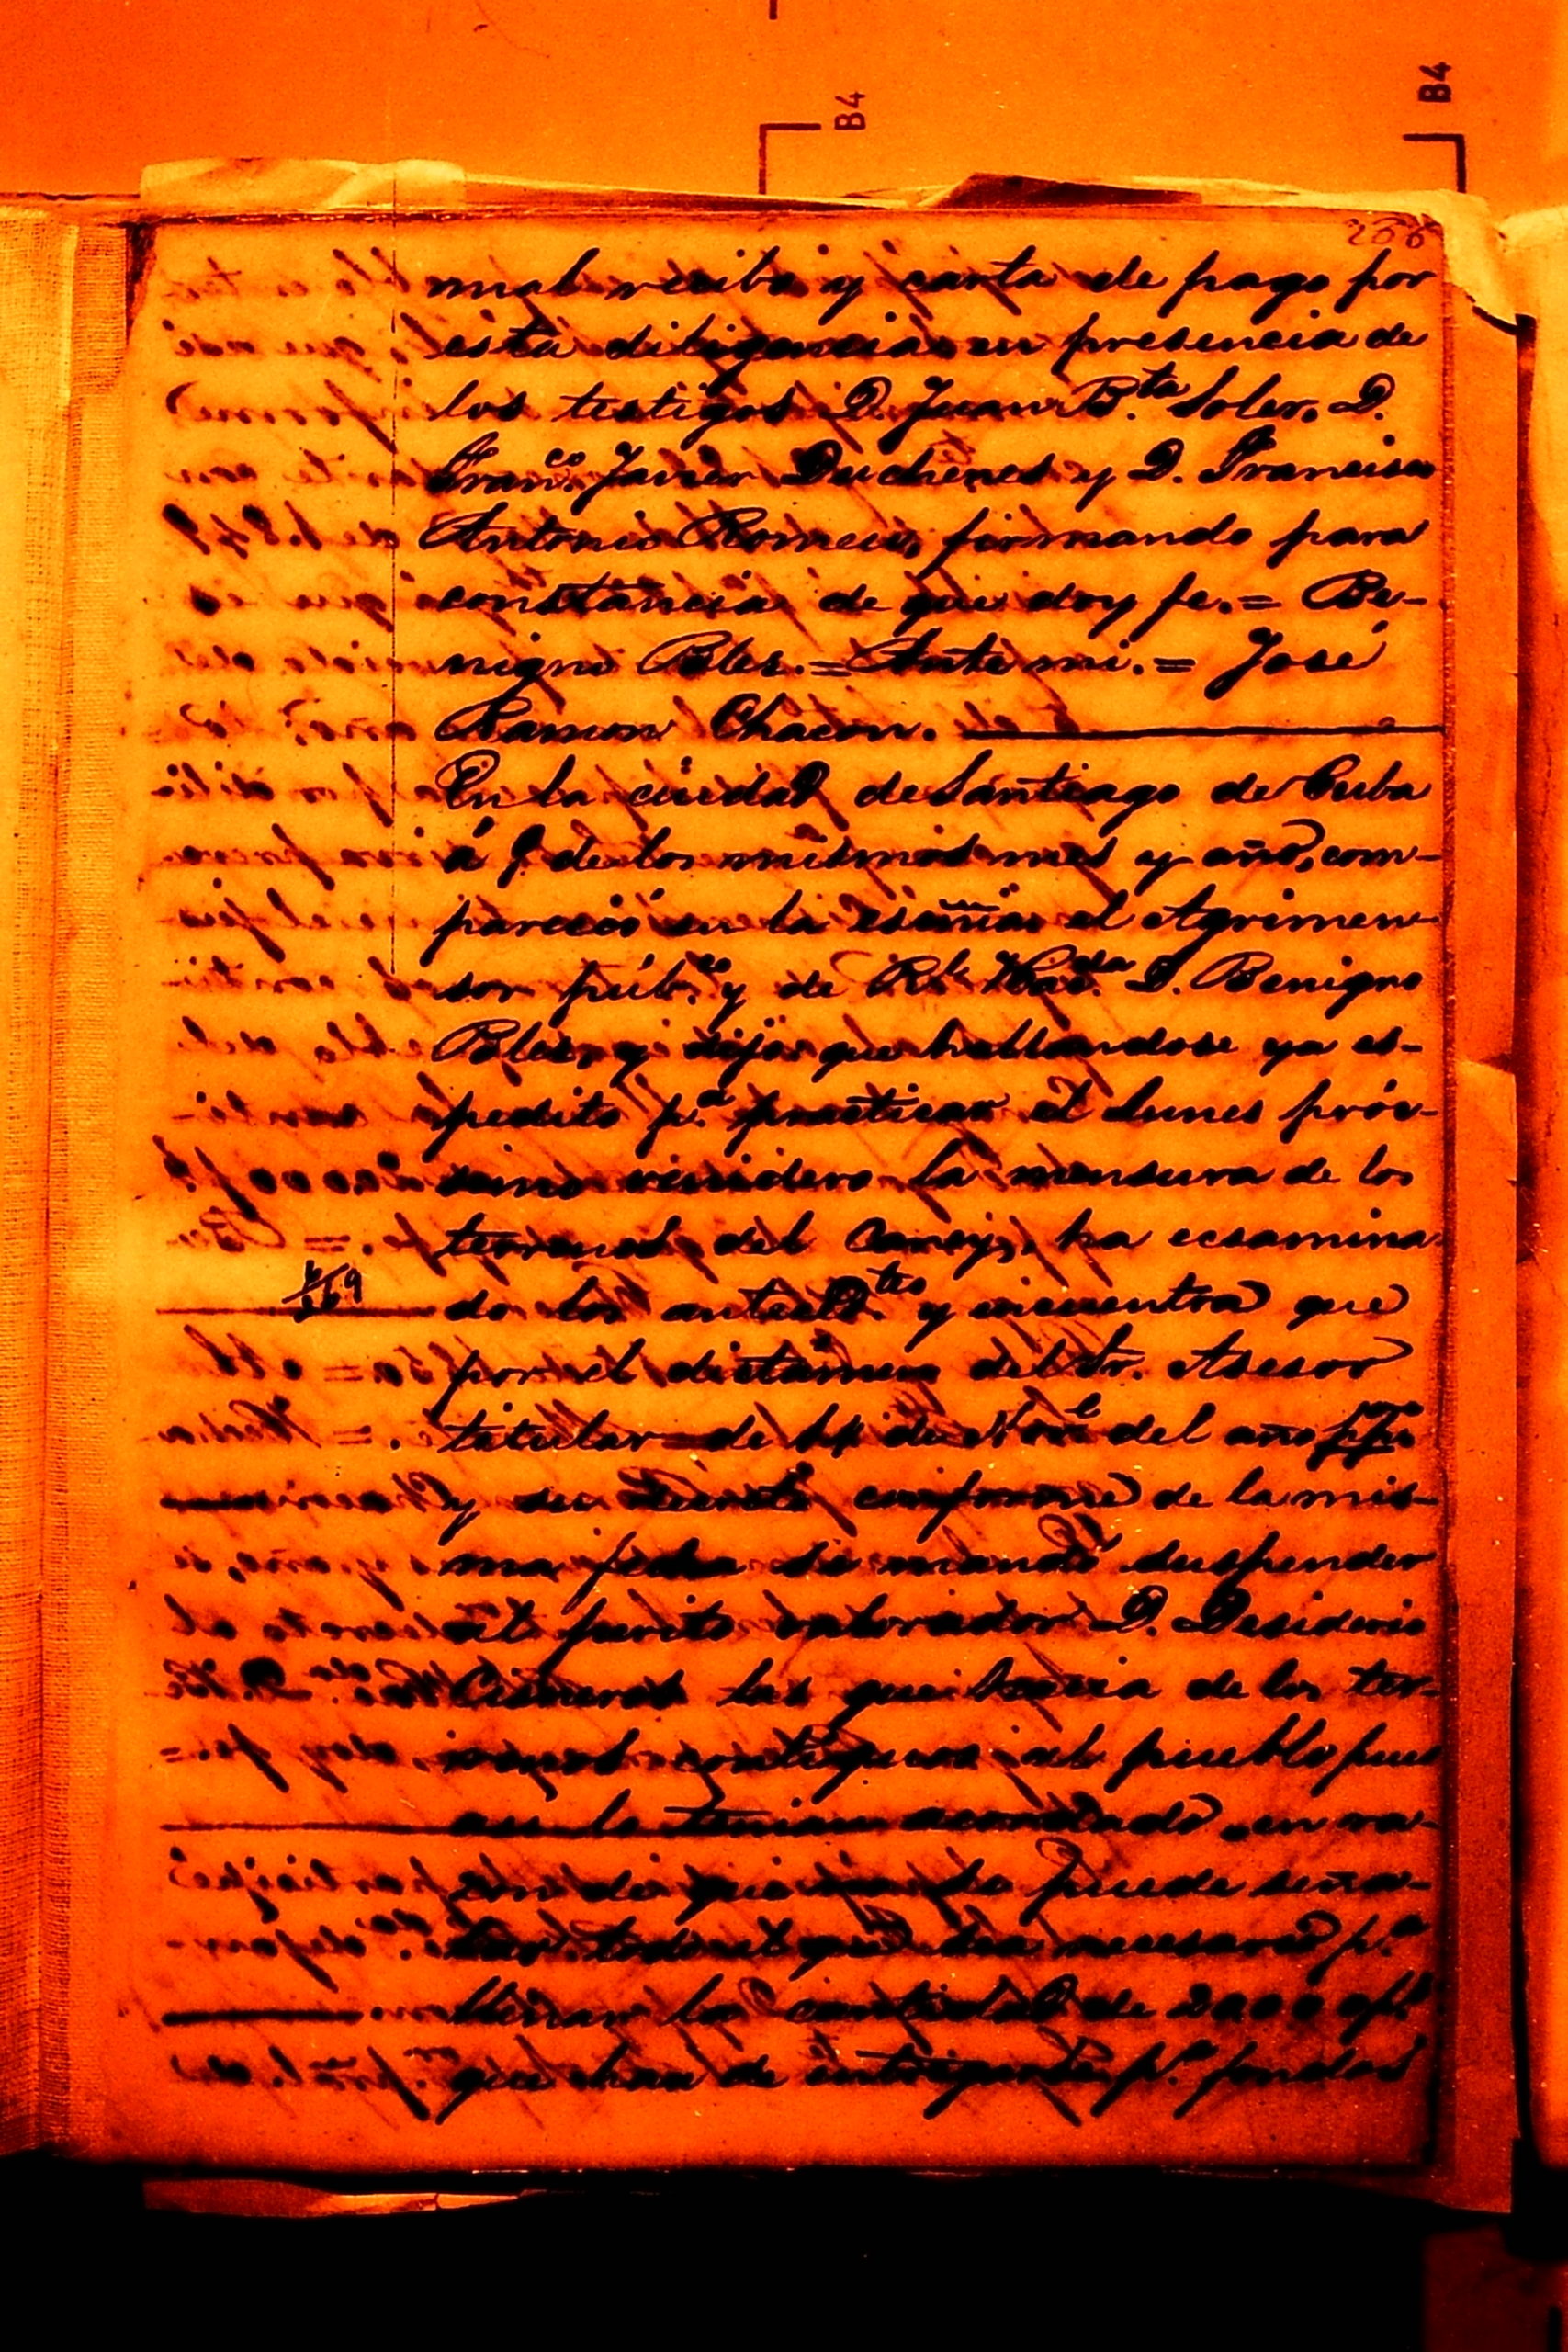 B4
B4
266
mal recibo y carta de pago por
esta diligencia en presencia de
los testigos D. Juan B.ta Soler, D.
Fran.co Javier Duchenes y D. Francisco
Antonio Romeu, firmando para
constancia de que doy fe. = Be-
nigno Bles. = Ante mi. = José
Ramon Chacon.
En la ciudad de Santiago de Cuba
á 9 de los mismos mes y año, com-
pareció en la esñia el Agrimen-
sor púb.co y de Rl. Hac.da D. Benigno
Bles, y dijo: que hallandose ya es-
pedito p.a practicar el Lunes próc-
simo venidero la mensura de los
terrenos del Caney, ha ecsamina
do los anteced.tes y encuentra que
por el dictamen del Sr. Asesor
titular de 14 de Nov.e del año ppo
y su decreto conforme de la mis-
ma fecha se mandó suspender
al perito valorador D. Desiderio
Cisneros las que hacia de los ter-
renos contiguos al pueblo pues
asi lo tenian acordado, en ra-
zon de que se puede seña-
lar todo el que sea necesario p.a
llenar la cantidad de 2000 p.s
que han de entregarse p.a fondos